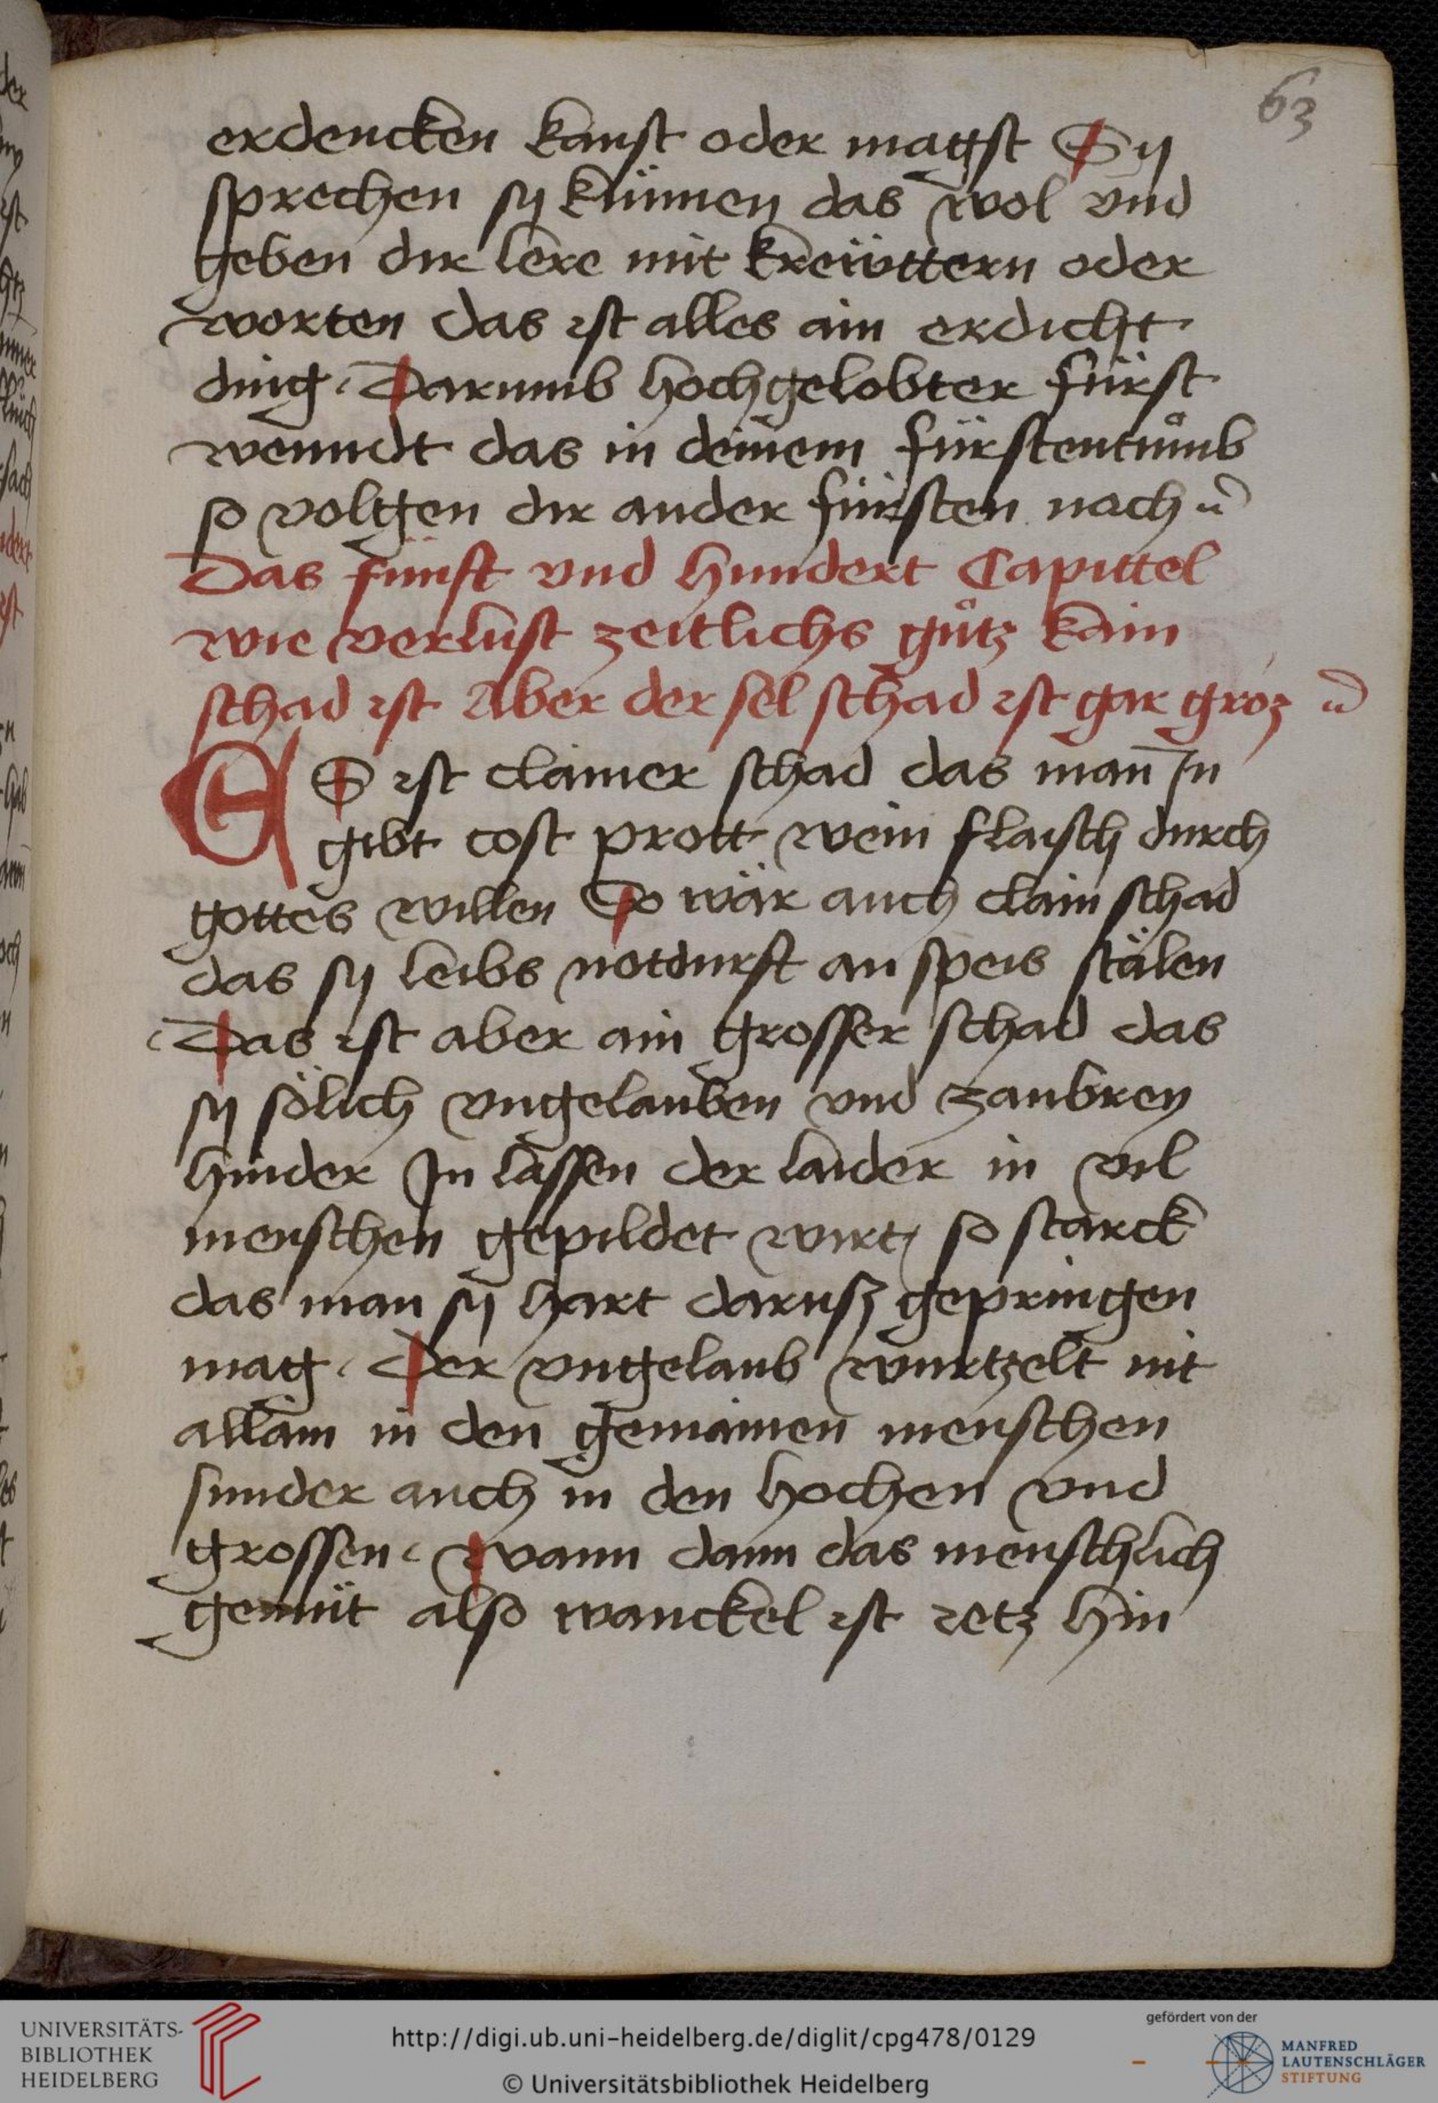 63
erdencken kanst oder magst Sy
sprechen sy künnen das wol vnd
geben dir lere mit kreüttern oder
worten das ist alles ain erdicht
ding. Darumb hochgelobter fürst
wenndt das in deinem fürstentuͦmb
so volgen dir ander fürsten nach
Das fünfft vnd hundert Capittel
wie verlust zeitlichs guͦtz kain
schad ist Aber der sel schad ist gar groz
ES ist clainer schad das man̄ In
gibt cost prott wein flaisch durch
gottes willen So wär auch clain schad
das sy leibs notdurft an speis stälen
Das ist aber ain grosser schad das
sy sölich vngelauben vnd zaubrey
hinder In lassen der laider in vil
menschen gepildet wirt / so starck
das man sy hart darusz gepringen
mag. Der vngelaub wurtzelt nit
allain in den gemainen menschen
sunder auch in den hochen vnd
grossen. Wann dann das menschlich
gemüt also wanckel ist ietz hin
UNIVERSITÄTS-
BIBLIOTHEK
HEIDELBERG
http://digi.ub.uni-heidelberg.de/diglit/cpg478/0129
© Universitätsbibliothek Heidelberg
gefördert von der
MANFRED
LAUTENSCHLÄGER
STIFTUNG